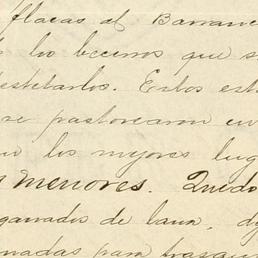 flacas al Barranc
los becerros que s
destetarlos. Estos est
se pastorearon en
los mejores lug
menores. Quedo
ganados de lana, d
nadas para trasqu